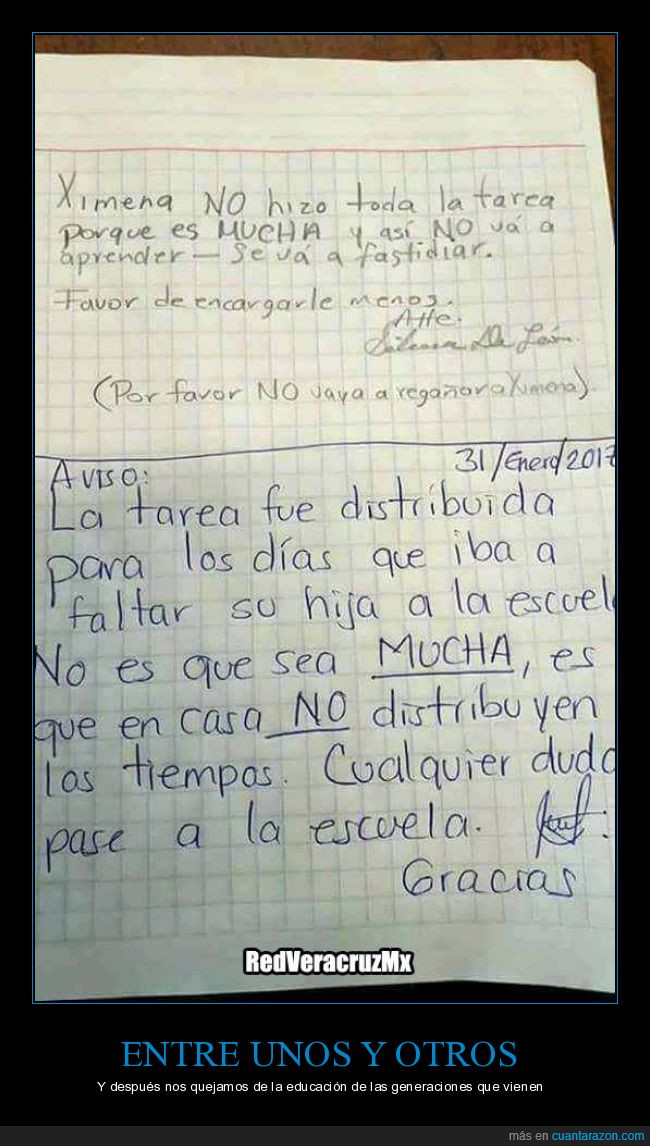 Ximena NO hizo toda la tarea
porque es MUCHA y así NO vá a
aprender — Se vá a fastidiar.
Favor de encargarle menos.
Atte.
De León.
(Por favor NO vaya a regañar a Ximena).
31/Enero/2017
AVISO:
La tarea fue distribuida
para los días que iba a
faltar su hija a la escuel
No es que sea MUCHA, es
que en casa NO distribuyen
los tiempos. Cualquier duda
pase a la escuela.
Gracias
RedVeracruzMx
ENTRE UNOS Y OTROS
Y después nos quejamos de la educación de las generaciones que vienen
más en cuantarazon.com